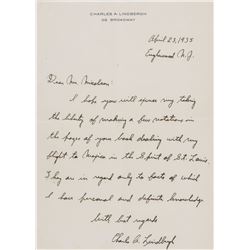 CHARLES A. LINDBERGH
25 BROADWAY
April 23, 1935
Englewood N.J.
Dear Mr.
I hope you will excuse my taking
the liberty of making a few notations on
the pages of your book dealing with my
flight to Mexico in the Spirit of St. Louis.
They are in regard only to facts of which
I have personal and definite knowledge
With best regards
Charles A. Lindbergh